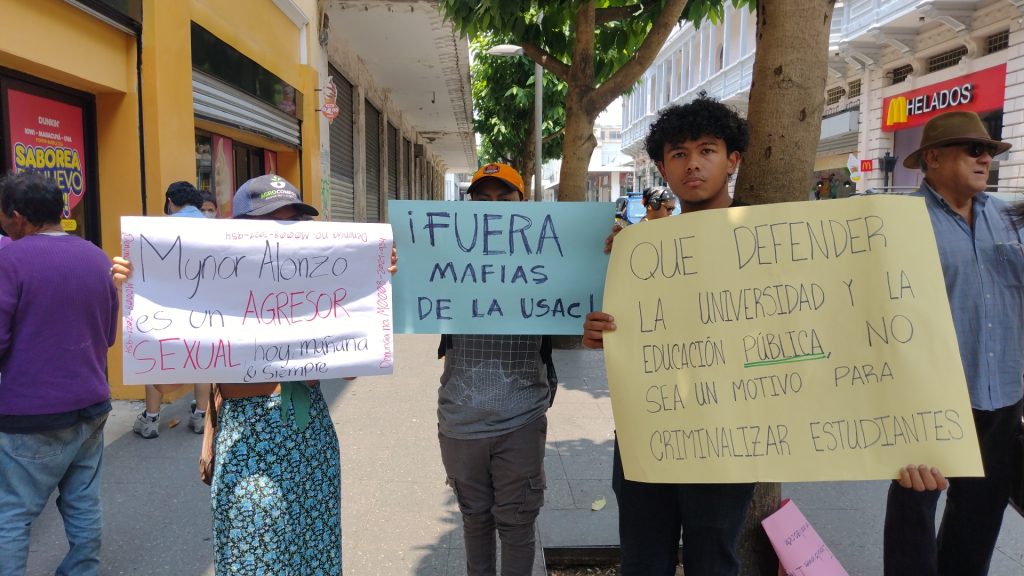 DUNKIN'
KIWI - MARACUYÁ - UVA
SABOREA
NUEVO
Mynor Alonzo
es un AGRESOR
SEXUAL, hoy, mañana
& siempre
¡FUERA
MAFIAS
DE LA USAC!
QUE DEFENDER
LA UNIVERSIDAD Y LA
EDUCACIÓN PÚBLICA, NO
SEA UN MOTIVO PARA
CRIMINALIZAR ESTUDIANTES
HELADOS